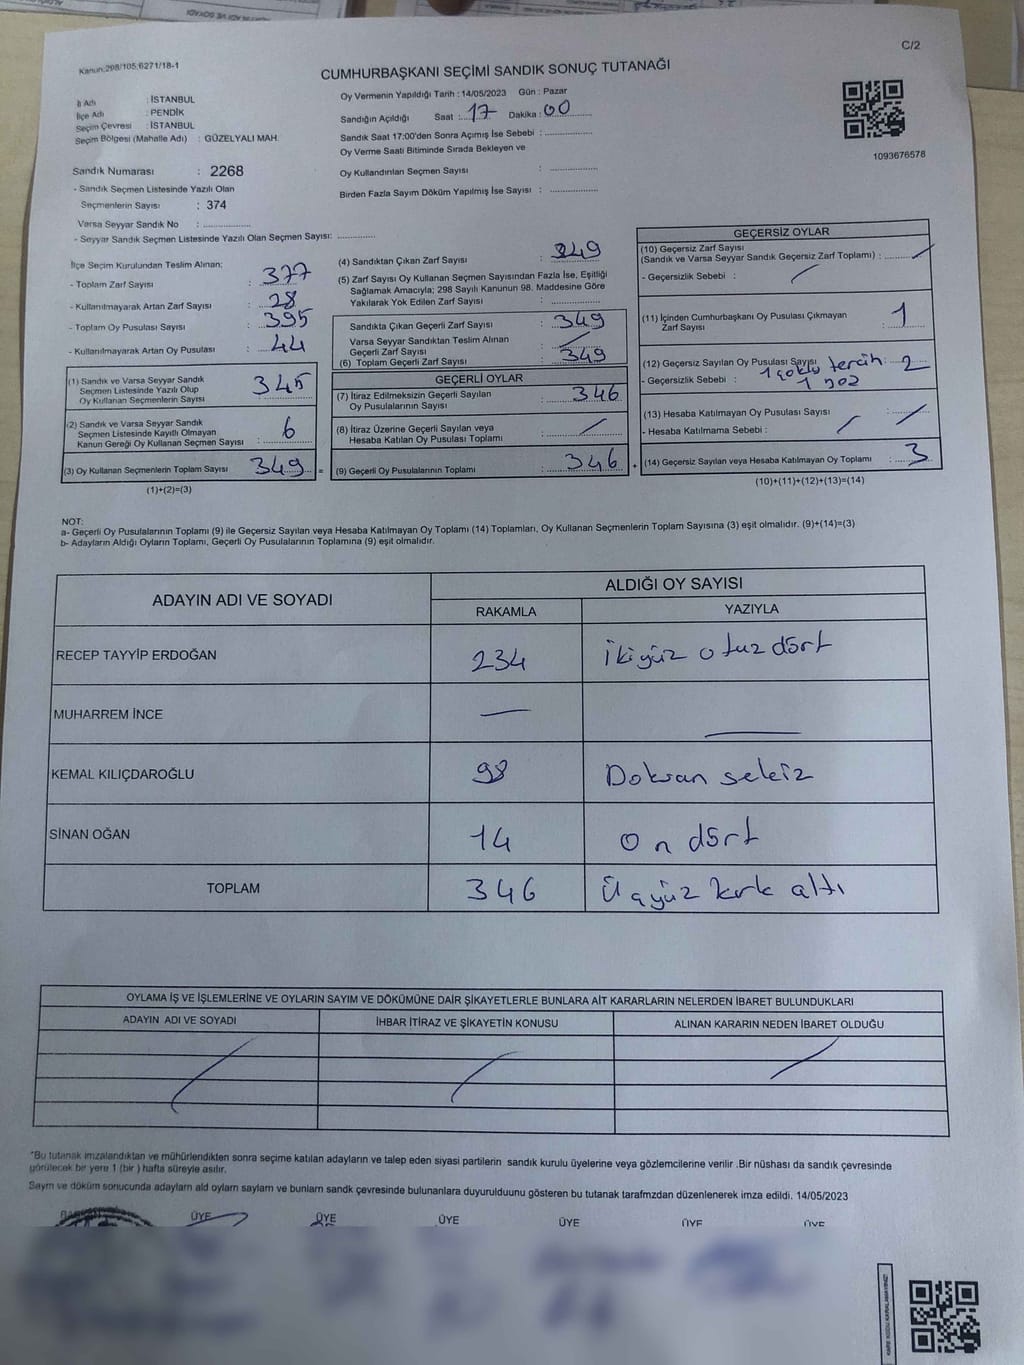 C/2
Kanun:298/105;6271/18-1
CUMHURBAŞKANI SEÇİMİ SANDIK SONUÇ TUTANAĞI
İl Adı : İSTANBUL
İlçe Adı : PENDİK
Seçim Çevresi : İSTANBUL
Seçim Bölgesi (Mahalle Adı) : GÜZELYALI MAH.
Sandık Numarası : 2268
- Sandık Seçmen Listesinde Yazılı Olan
Seçmenlerin Sayısı : 374
Varsa Seyyar Sandık No : ..................
- Seyyar Sandık Seçmen Listesinde Yazılı Olan Seçmen Sayısı: .............
Oy Vermenin Yapıldığı Tarih : 14/05/2023 Gün : Pazar
Sandığın Açıldığı Saat : 17 Dakika : 00
Sandık Saat 17:00'den Sonra Açımış İse Sebebi : ................
Oy Verme Saati Bitiminde Sırada Bekleyen ve
Oy Kullandırılan Seçmen Sayısı : ................
Birden Fazla Sayım Döküm Yapılmış İse Sayısı : ................
1093676578
İlçe Seçim Kurulundan Teslim Alınan:
- Toplam Zarf Sayısı : 377
- Kullanılmayarak Artan Zarf Sayısı : 28
- Toplam Oy Pusulası Sayısı : 395
- Kullanılmayarak Artan Oy Pusulası : 44
(1) Sandık ve Varsa Seyyar Sandık
Seçmen Listesinde Yazılı Olup
Oy Kullanan Seçmenlerin Sayısı : 345
(2) Sandık ve Varsa Seyyar Sandık
Seçmen Listesinde Kayıtlı Olmayan
Kanun Gereği Oy Kullanan Seçmen Sayısı : 6
(3) Oy Kullanan Seçmenlerin Toplam Sayısı : 349 =
(1)+(2)=(3)
(4) Sandıktan Çıkan Zarf Sayısı : 349
(5) Zarf Sayısı Oy Kullanan Seçmen Sayısından Fazla İse, Eşitliği
Sağlamak Amacıyla; 298 Sayılı Kanunun 98. Maddesine Göre
Yakılarak Yok Edilen Zarf Sayısı : ................
Sandıkta Çıkan Geçerli Zarf Sayısı : 349
Varsa Seyyar Sandıktan Teslim Alınan
Geçerli Zarf Sayısı : /
(6) Toplam Geçerli Zarf Sayısı : 349
GEÇERLİ OYLAR
(7) İtiraz Edilmeksizin Geçerli Sayılan
Oy Pusulalarının Sayısı : 346
(8) İtiraz Üzerine Geçerli Sayılan veya
Hesaba Katılan Oy Pusulası Toplamı : /
(9) Geçerli Oy Pusulalarının Toplamı : 346 +
GEÇERSİZ OYLAR
(10) Geçersiz Zarf Sayısı
(Sandık ve Varsa Seyyar Sandık Geçersiz Zarf Toplamı) : /
- Geçersizlik Sebebi : /
(11) İçinden Cumhurbaşkanı Oy Pusulası Çıkmayan
Zarf Sayısı : 1
(12) Geçersiz Sayılan Oy Pusulası Sayısı : 2
- Geçersizlik Sebebi : 1 çoklu tercih
1
(13) Hesaba Katılmayan Oy Pusulası Sayısı : /
- Hesaba Katılmama Sebebi : /
(14) Geçersiz Sayılan veya Hesaba Katılmayan Oy Toplamı : 3
(10)+(11)+(12)+(13)=(14)
NOT:
a- Geçerli Oy Pusulalarının Toplamı (9) ile Geçersiz Sayılan veya Hesaba Katılmayan Oy Toplamı (14) Toplamları, Oy Kullanan Seçmenlerin Toplam Sayısına (3) eşit olmalıdır. (9)+(14)=(3)
b- Adayların Aldığı Oyların Toplamı, Geçerli Oy Pusulalarının Toplamına (9) eşit olmalıdır.
ADAYIN ADI VE SOYADI ALDIĞI OY SAYISI
RAKAMLA YAZIYLA
RECEP TAYYİP ERDOĞAN 234 İkiyüz otuz dört
MUHARREM İNCE — —
KEMAL KILIÇDAROĞLU 98 Doksan sekiz
SİNAN OĞAN 14 On dört
TOPLAM 346 Üçyüz kırk altı
OYLAMA İŞ VE İŞLEMLERİNE VE OYLARIN SAYIM VE DÖKÜMÜNE DAİR ŞİKAYETLERLE BUNLARA AİT KARARLARIN NELERDEN İBARET BULUNDUKLARI
ADAYIN ADI VE SOYADI İHBAR İTİRAZ VE ŞİKAYETİN KONUSU ALINAN KARARIN NEDEN İBARET OLDUĞU
*Bu tutanak imzalandıktan ve mühürlendikten sonra seçime katılan adayların ve talep eden siyasi partilerin sandık kurulu üyelerine veya gözlemcilerine verilir .Bir nüshası da sandık çevresinde
görülecek bir yere 1 (bir ) hafta süreyle asılır.
Sayım ve döküm sonucunda adayların ald oyların sayların ve bunların sandk çevresinde bulunanlara duyurulduunu gösteren bu tutanak tarafmzdan düzenlenerek imza edildi. 14/05/2023
BAŞKAN ÜYE ÜYE ÜYE ÜYE ÜYE ÜYE
KARE KODU KARALAMAYINIZ!